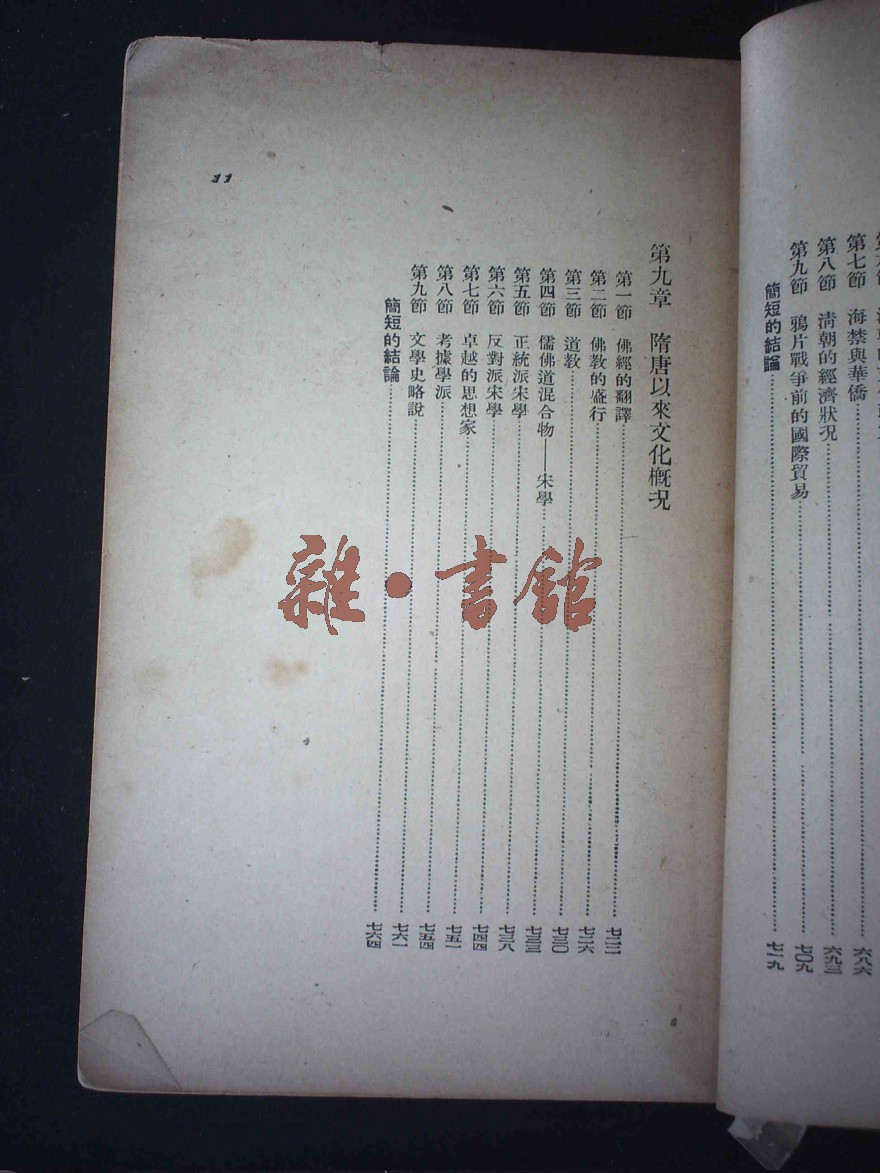 第七節 海禁與華僑……六八六
第八節 清朝的經濟狀況……六九三
第九節 鴉片戰爭前的國際貿易……七〇九
簡短的結論……七一九
第九章 隋唐以來文化概況
第一節 佛經的翻譯……七二二
第二節 佛教的盛行……七二六
第三節 道教……七三〇
第四節 儒佛道混合物——宋學……七三三
第五節 正統派宋學……七三八
第六節 反對派宋學……七四四
第七節 卓越的思想家……七五一
第八節 考據學派……七五四
第九節 文學史略說……七六一
簡短的結論……七六四
11
雜·書館